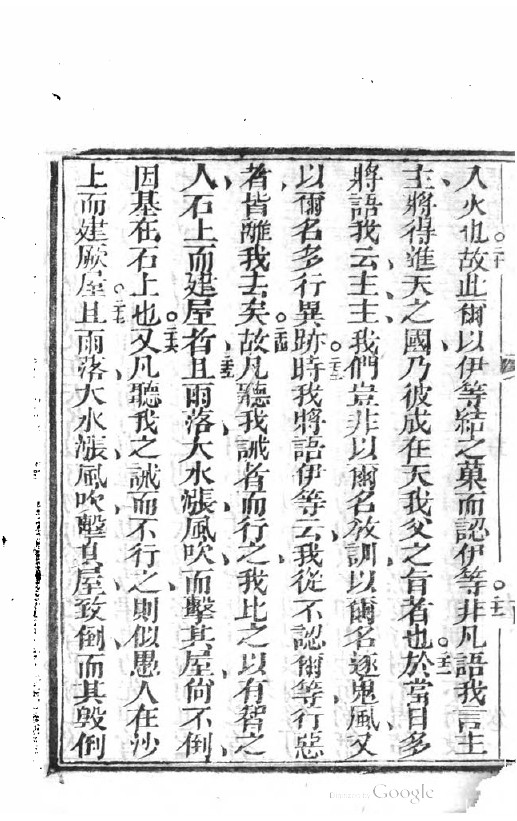 入火也故此爾以伊等結之菓而認伊等非凡語我言主
主將得進天之國乃彼成在天我父之旨者也於當日多
將語我云主主我們豈非以爾名教訓以爾名逐鬼風又
以爾名多行異跡時我將語伊等云我從不認爾等行惡
者皆離我去矣故凡聽我誡者而行之我比之以有智之
人石上而建屋者且雨落大水漲風吹而擊其屋尚不倒
因基在石上也又凡聽我之誡而不行之則似愚人在沙
上而建厥屋且雨落大水漲風吹擊其屋致倒而其毀倒
Digitized by Google